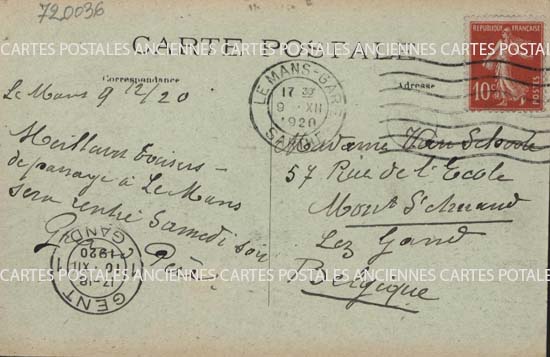 720036
CARTE POSTALE
Correspondance
Adresse
REPUBLIQUE FRANÇAISE
10c
POSTES
LE MANS-GARE
17
9 - XII
1920
SARTHE
Le Mans 9 12/20
Meilleurs baisers
de passage à Le Mans
sera rentré Samedi soir
Madame Van
57 Rue de l'Ecole
Mont St Amand
Lez Gand
Belgique
GENT
GAND
17-18
XII
1920
CARTES POSTALES ANCIENNES CARTES POSTALES ANCIENNES CARTES POSTALES